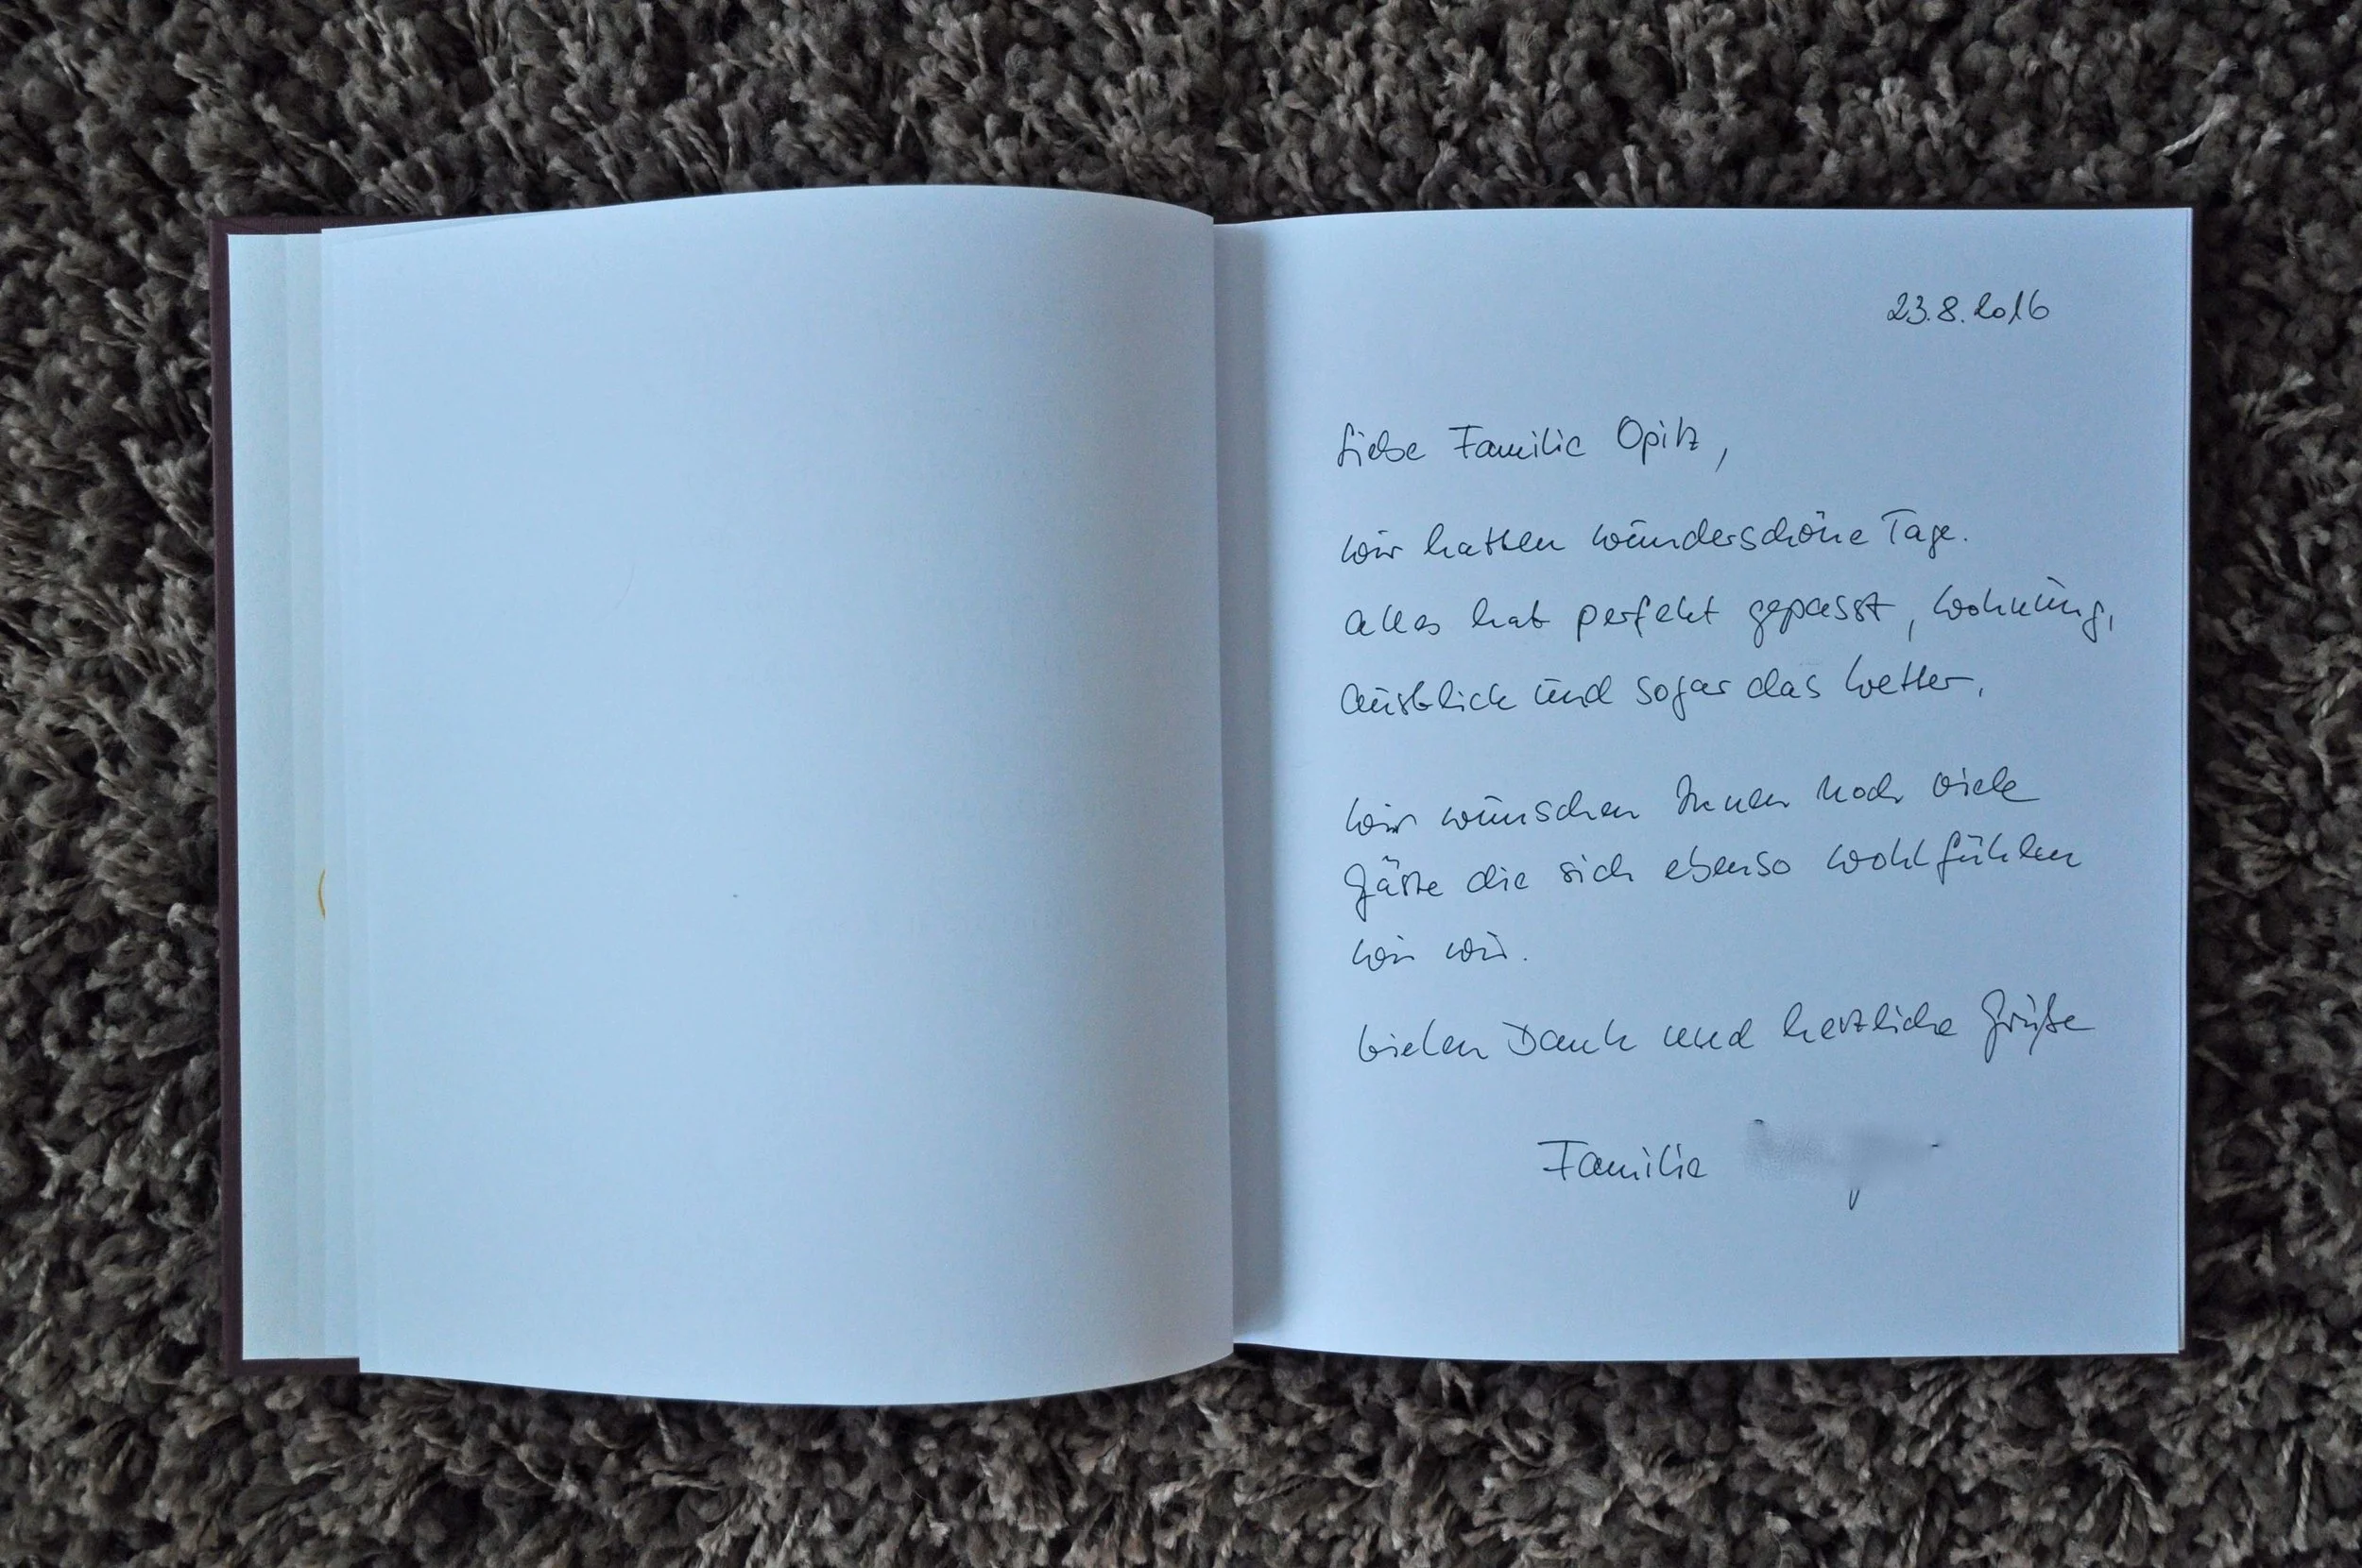 23.8.2016
Liebe Familie Opitz,
wir hatten wunderschöne Tage.
Alles hat perfekt gepasst, Wohnung,
Ausblick und sogar das Wetter.
Wir wünschen Ihnen noch viele
Gäste die sich ebenso wohlfühlen
wie wir.
Vielen Dank und herzliche Grüße
Familie